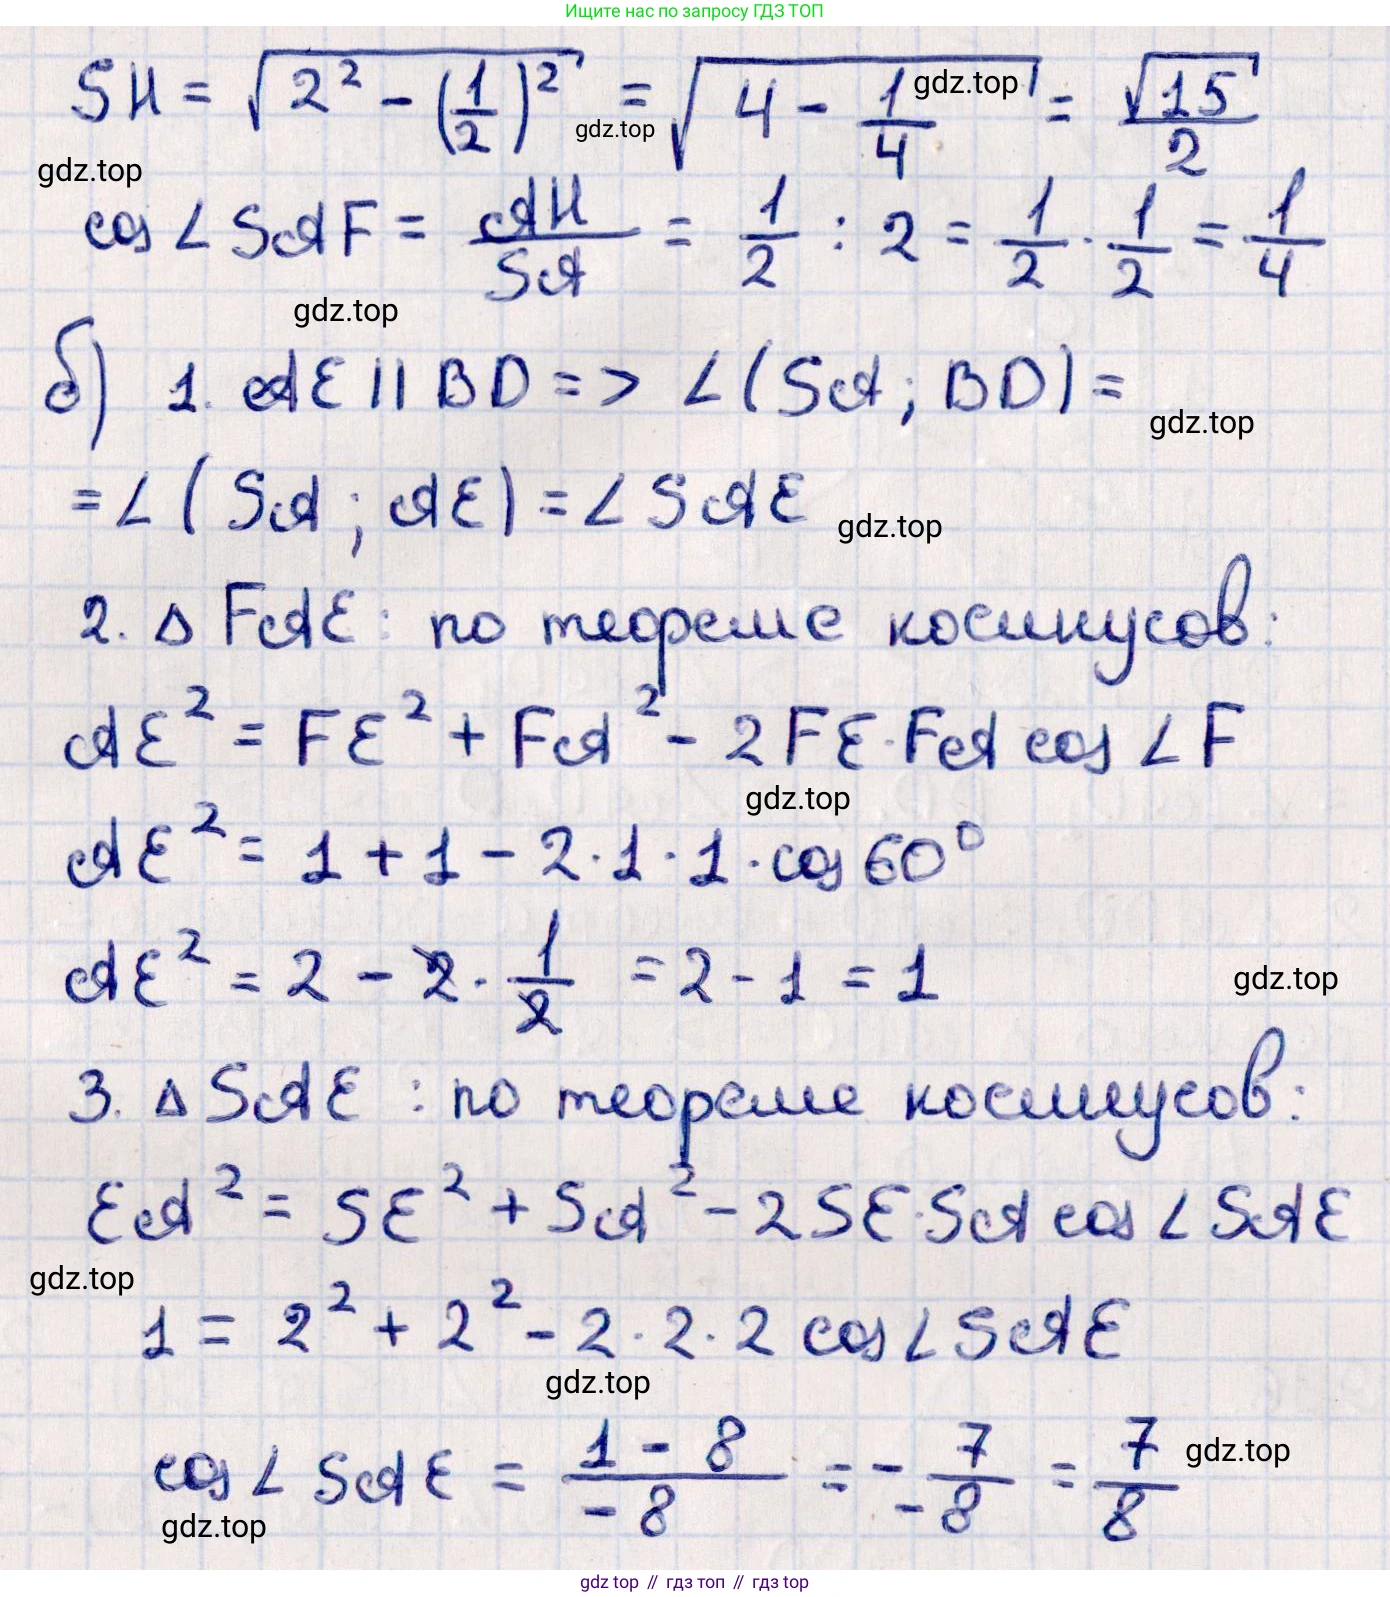 Ищите нас по запросу ГДЗ ТОП
SH = √(2² - (1/2)²) = √(4 - 1/4) = √15/2
gdz.top
gdz.top
gdz.top
cos ∠ SAF = AH/SA = 1/2 : 2 = 1/2 · 1/2 = 1/4
gdz.top
б) 1. AE || BD => ∠(SA; BD) =
gdz.top
= ∠(SA; AE) = ∠ SAE
gdz.top
2. Δ FAE: по теореме косинусов:
AE² = FE² + FA² - 2FE·FA cos ∠ F
gdz.top
AE² = 1 + 1 - 2·1·1·cos 60°
AE² = 2 - 2 · 1/2 = 2 - 1 = 1
gdz.top
3. Δ SAE : по теореме косинусов:
EA² = SE² + SA² - 2SE·SA cos ∠ SAE
gdz.top
1 = 2² + 2² - 2·2·2 cos ∠ SAE
gdz.top
cos ∠ SAE = (1 - 8)/(-8) = -7/-8 = 7/8
gdz.top
gdz.top
gdz top // гдз топ // гдз top